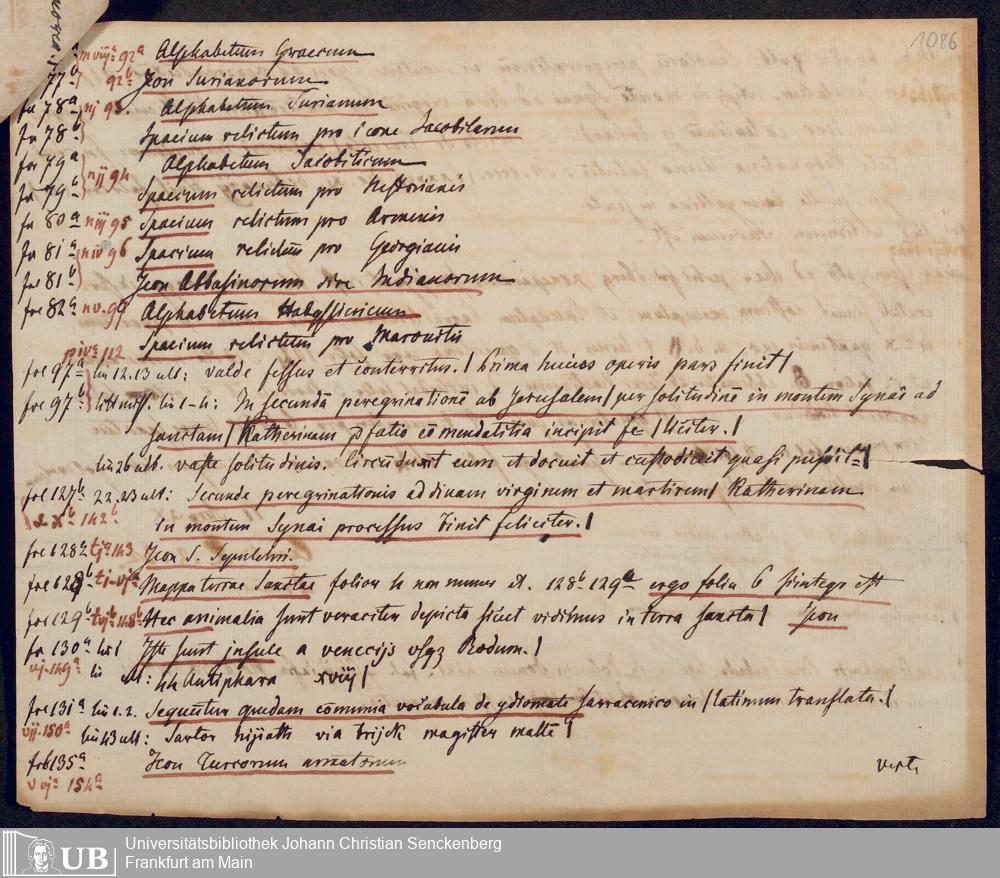 1086
m viijᵃ 92ᵃ Alphabetum Graecum
77ᵇ 92ᵇ Icon Surianorum
fo 78ᵃ nj 93. Alphabetum Surianum
fo 78ᵇ Spacium relictum pro icone Jacobitarum
fo 79ᵃ Alphabetum Jacobiticum
fo 79ᵇ nij 94 Spacium relictum pro Nestorianis
fo 80ᵃ niij 95 Spacium relictum pro Armenis
fo 81ᵃ niv 96 Spacium relictum pro Georgianis
fol 81ᵇ Icon Abbasinorum sive Indianorum
fol 82ᵃ nv. 97 Alphabetum
Spacium relictum pro Maronitis
pivᵃ 112
fol 97ᵃ lin 12.13 ult: valde fessus et conterritus. / Prima huius operis pars finit /
fol 97ᵇ litt miss. lin 1-4: In secundā peregrinationē ab Jerusalem / per solitudinē in montem Synai ad
sanctam / Katherinam p̄fatio cōmendatitia incipit fe= / liciter. /
lin 26 ult. vaste solitudinis. Circūduxit eum et docuit et custodiuit quasi pupil= /
fol 127ᵇ 22.23 ult: Secunde peregrinationis ad diuam virginem et martirem / Katherinam
142ᵇ in montem Synai processus Finit feliciter. /
fol 128ᵃ tjᵃ 143 Icon S. Sepulchri.
fol 128ᵇ tj-vjᵃ Mappa terrae Sanctae folior 4 non numer. 128ᵇ 129ᵃ ergo folia 6 sunt
fol 129ᵇ tvjᵇ 148ᵇ Hec animalia sunt veraciter depicta sicut vidimus in terra sancta / Icon
fo 130ᵃ lin 1 Iste sunt insule a venecijs vsqz Rodum. /
vj. 149ᵃ lin ult: 44 Antiphara xviij /
fol 131ᵃ lin 1.2. Sequūtur quedam cōmunia vocabula de ydiomate sarracenico in / latinum translata. /
vij. 150ᵃ lin 43 ult: Sartor hijath via trijck magister malte /
fol 135ᵃ Icon Turcorum armatorum
154ᵃ
verte
UB Universitätsbibliothek Johann Christian Senckenberg
Frankfurt am Main